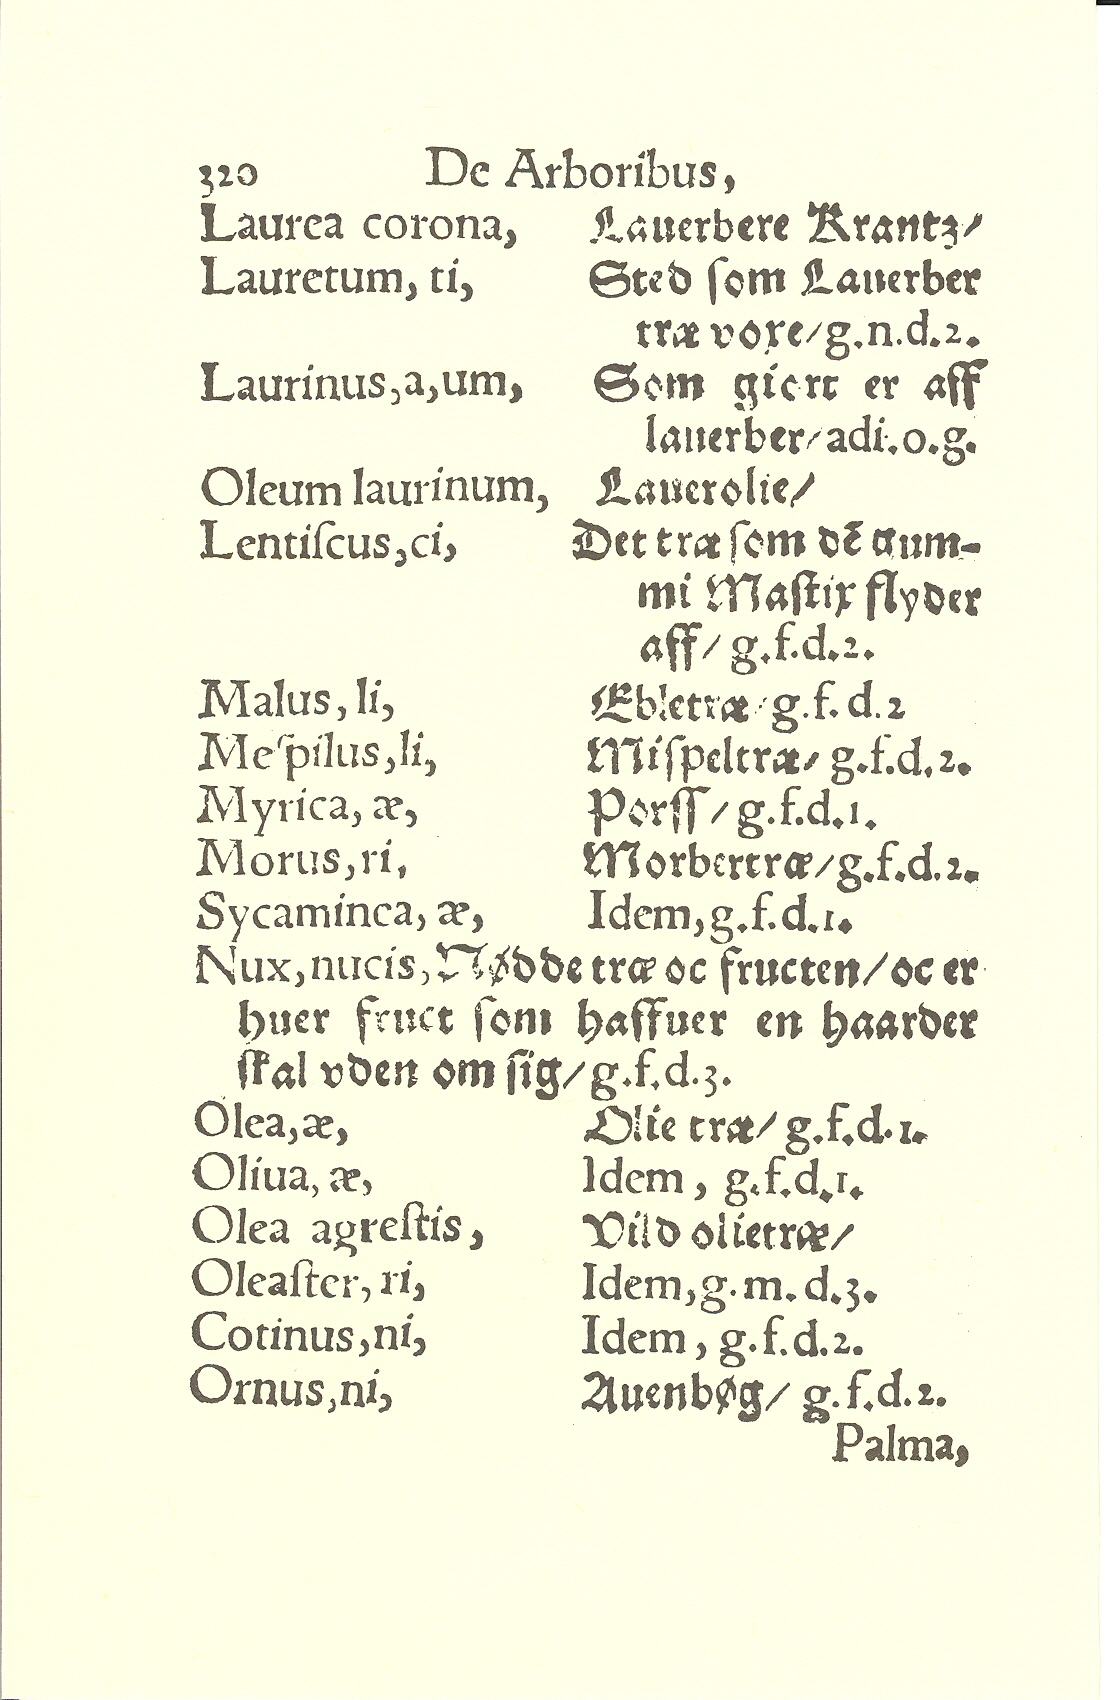 320 De Arboribus,
Laurea corona, Lauerbere Krantz/
Lauretum, ti, Sted ſom Lauerber
træ voxe/g.n.d.2.
Laurinus,a,um, Som giort er aff
lauerber/adi.o.g.
Oleum laurinum, Lauerolie/
Lentiſcus,ci, Det træ ſom dẽ gum-
mi Maſtix flyder
aff/ g.f.d.2.
Malus, li, Æbletræ/g.f.d.2
Meſpilus,li, Miſpeltræ/ g.f.d.2.
Myrica, æ, Porſſ/g.f.d.1.
Morus,ri, Morbertræ/g.f.d.2.
Sycaminea, æ, Idem,g.f.d.1.
Nux,nucis,Nødde træ oc fructen/oc er
huer fruct ſom haffuer en haarder
ſkal vden om ſig/g.f.d.3.
Olea,æ, Olie træ/ g.f.d.1.
Oliua, æ, Idem, g.f.d.1.
Olea agreſtis, Vild olietræ/
Oleaſter, ri, Idem,g.m.d.3.
Cotinus,ni, Idem, g.f.d.2.
Ornus,ni, Auenbøg/ g.f.d.2.
Palma,